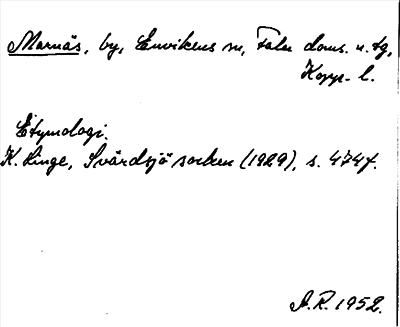 Marnäs, by, Envikens sn, Falu doms. n. tg,
Kopp. l.
Etymologi.
K. Linge, Svärdsjö socken (1929), s. 474f.
A.R. 1952.